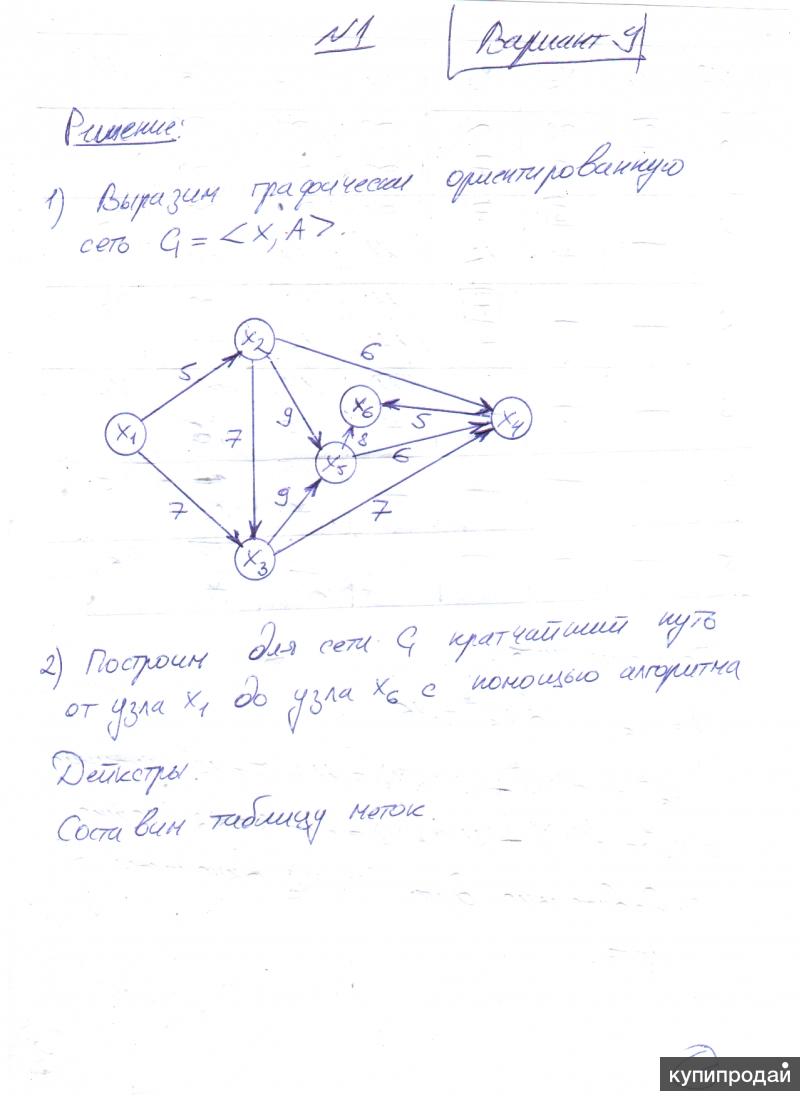 №1
Вариант 9
Решение:
1) Выразим графически ориентированную
сеть G = <X, A>.
x2
6
5
x6
x1
9
5
x4
7
8
x5
6
7
9
7
x3
2) Построим для сети G кратчайший путь
от узла x1 до узла x6 с помощью алгоритма
Дейкстры.
Составим таблицу меток.
купипродай